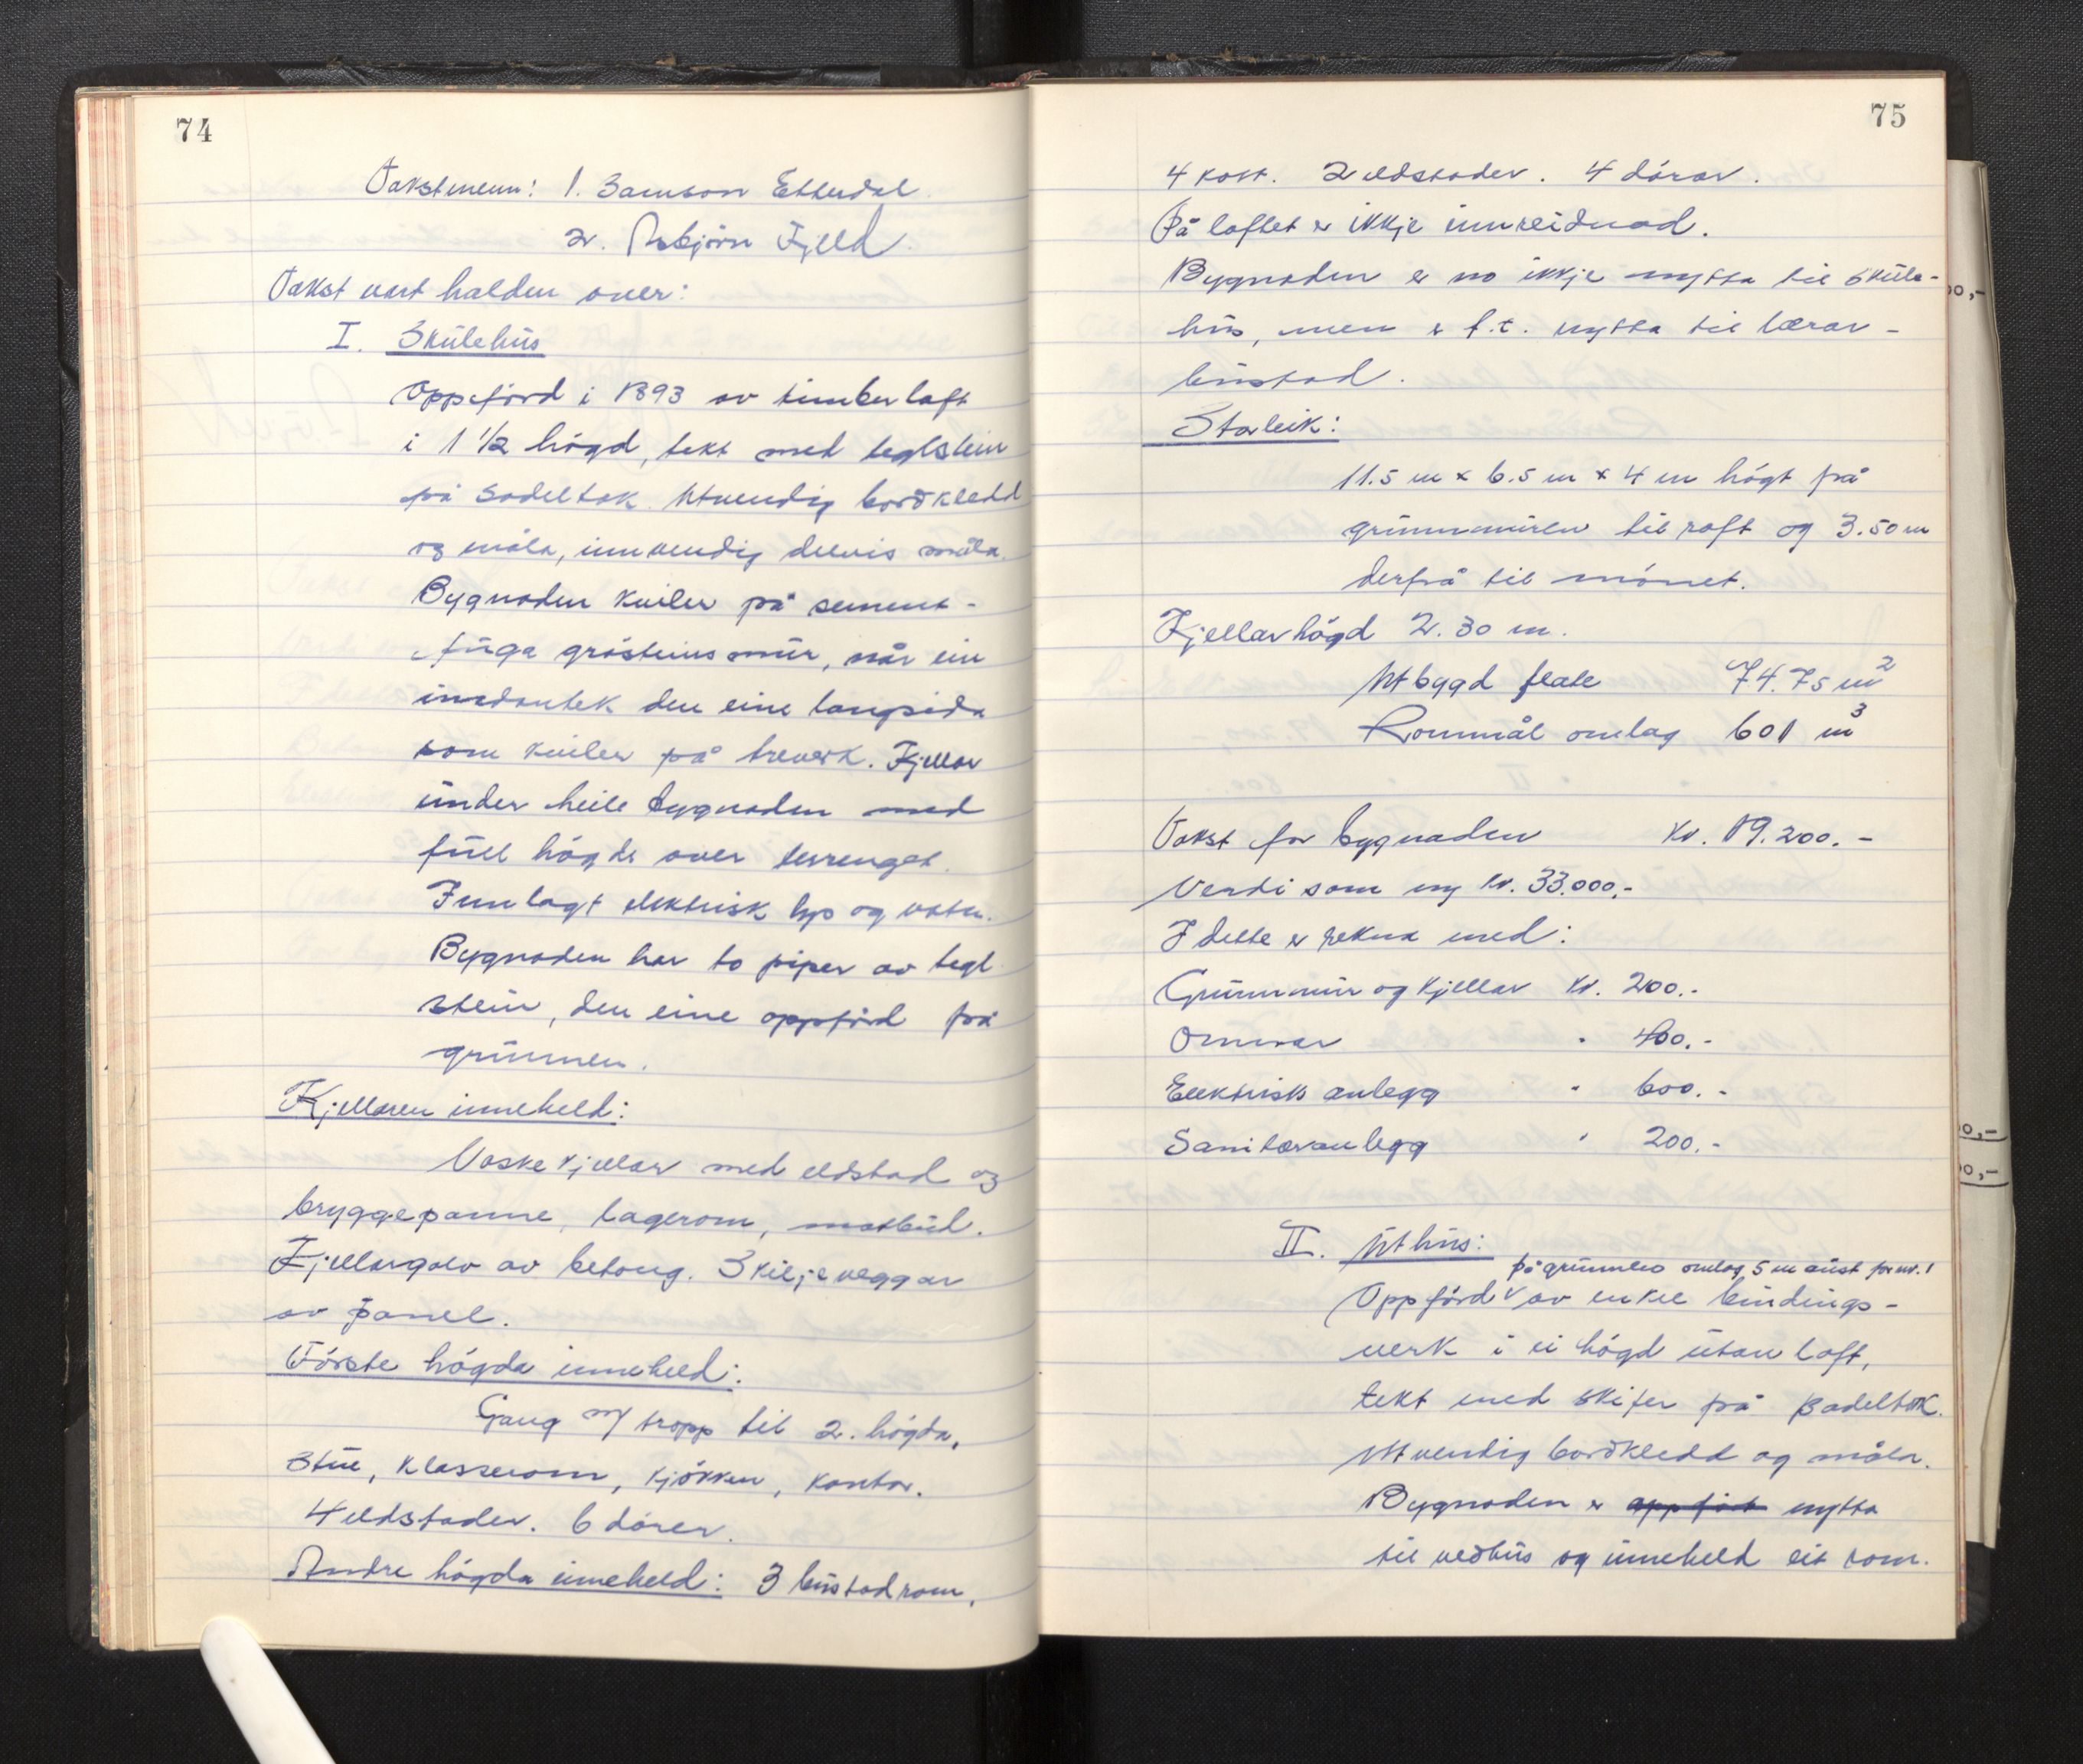 74
Takstmenn: 1. Samson Etterdal
2. Asbjörn Fjeld.
Takst vart halden over:
I. Skülehüs
Oppförd i 1893 av timberlaft
i 1 1/2 högd, tekt med teglstein
på sadeltak. Utvendig bordkledd
og måla, innvendig delvis måla.
Bygnaden kviler på sement-
füga gråsteinsmür, når ein
undantek den eine langsida
som kviler på treverk. Kjellar
ünder heile bygnaden med
füll högde over terrenget.
Innlagt elektrisk lys og vatn.
Bygnaden har to piper av tegl
stein, den eine oppförd frå
grünnen.
Kjellaren inneheld:
Vaskekjellar med eldstad og
bryggepanne, lagerom, matbüd.
Kjellargolv av betong. Skiljeveggar
av panel.
Förste högda inneheld:
Gang m/ tropp til 2. högda,
Stüe, klasserom, kjökken, kontor.
4 eldstader. 6 dörer.
Andre högda inneheld: 3 büstadrom,
75
4 kott. 2 eldstader. 4 dörar.
På loftet er ikkje innreidnad.
Bygnaden er no ikkje nytta til sküle-
hüs, men er f.t. nytta til lærar-
büstad.
Storleik:
11.5 m x 6.5 m x 4 m högt frå
grünnmüren til raft og 3.50 m
derfrå til mönet.
Kjellarhögd 2.30 m.
Utbygd flate 74.75 m2
Rommål omlag 601 m3
Takst for bygnaden Kr. 19.200.-
Verdi som ny kr. 33.000.-
I dette er rekna med:
Grünnmür og kjellar kr. 200.-
Omnar " 400.-
Elektrisk anlegg " 600.-
Sanitæranlegg " 200.-
II. Uthüs:
på grünnlo omlag 5 m aüst for nr. 1
Oppförd v av enkel bindings-
verk i ei högd ütan loft,
tekt med skifer på sadeltak.
Utvendig bordkledd og måla.
Bygnaden er oppfört nytta
til vedhüs og inneheld eit rom.
00,-
0,-
00,-